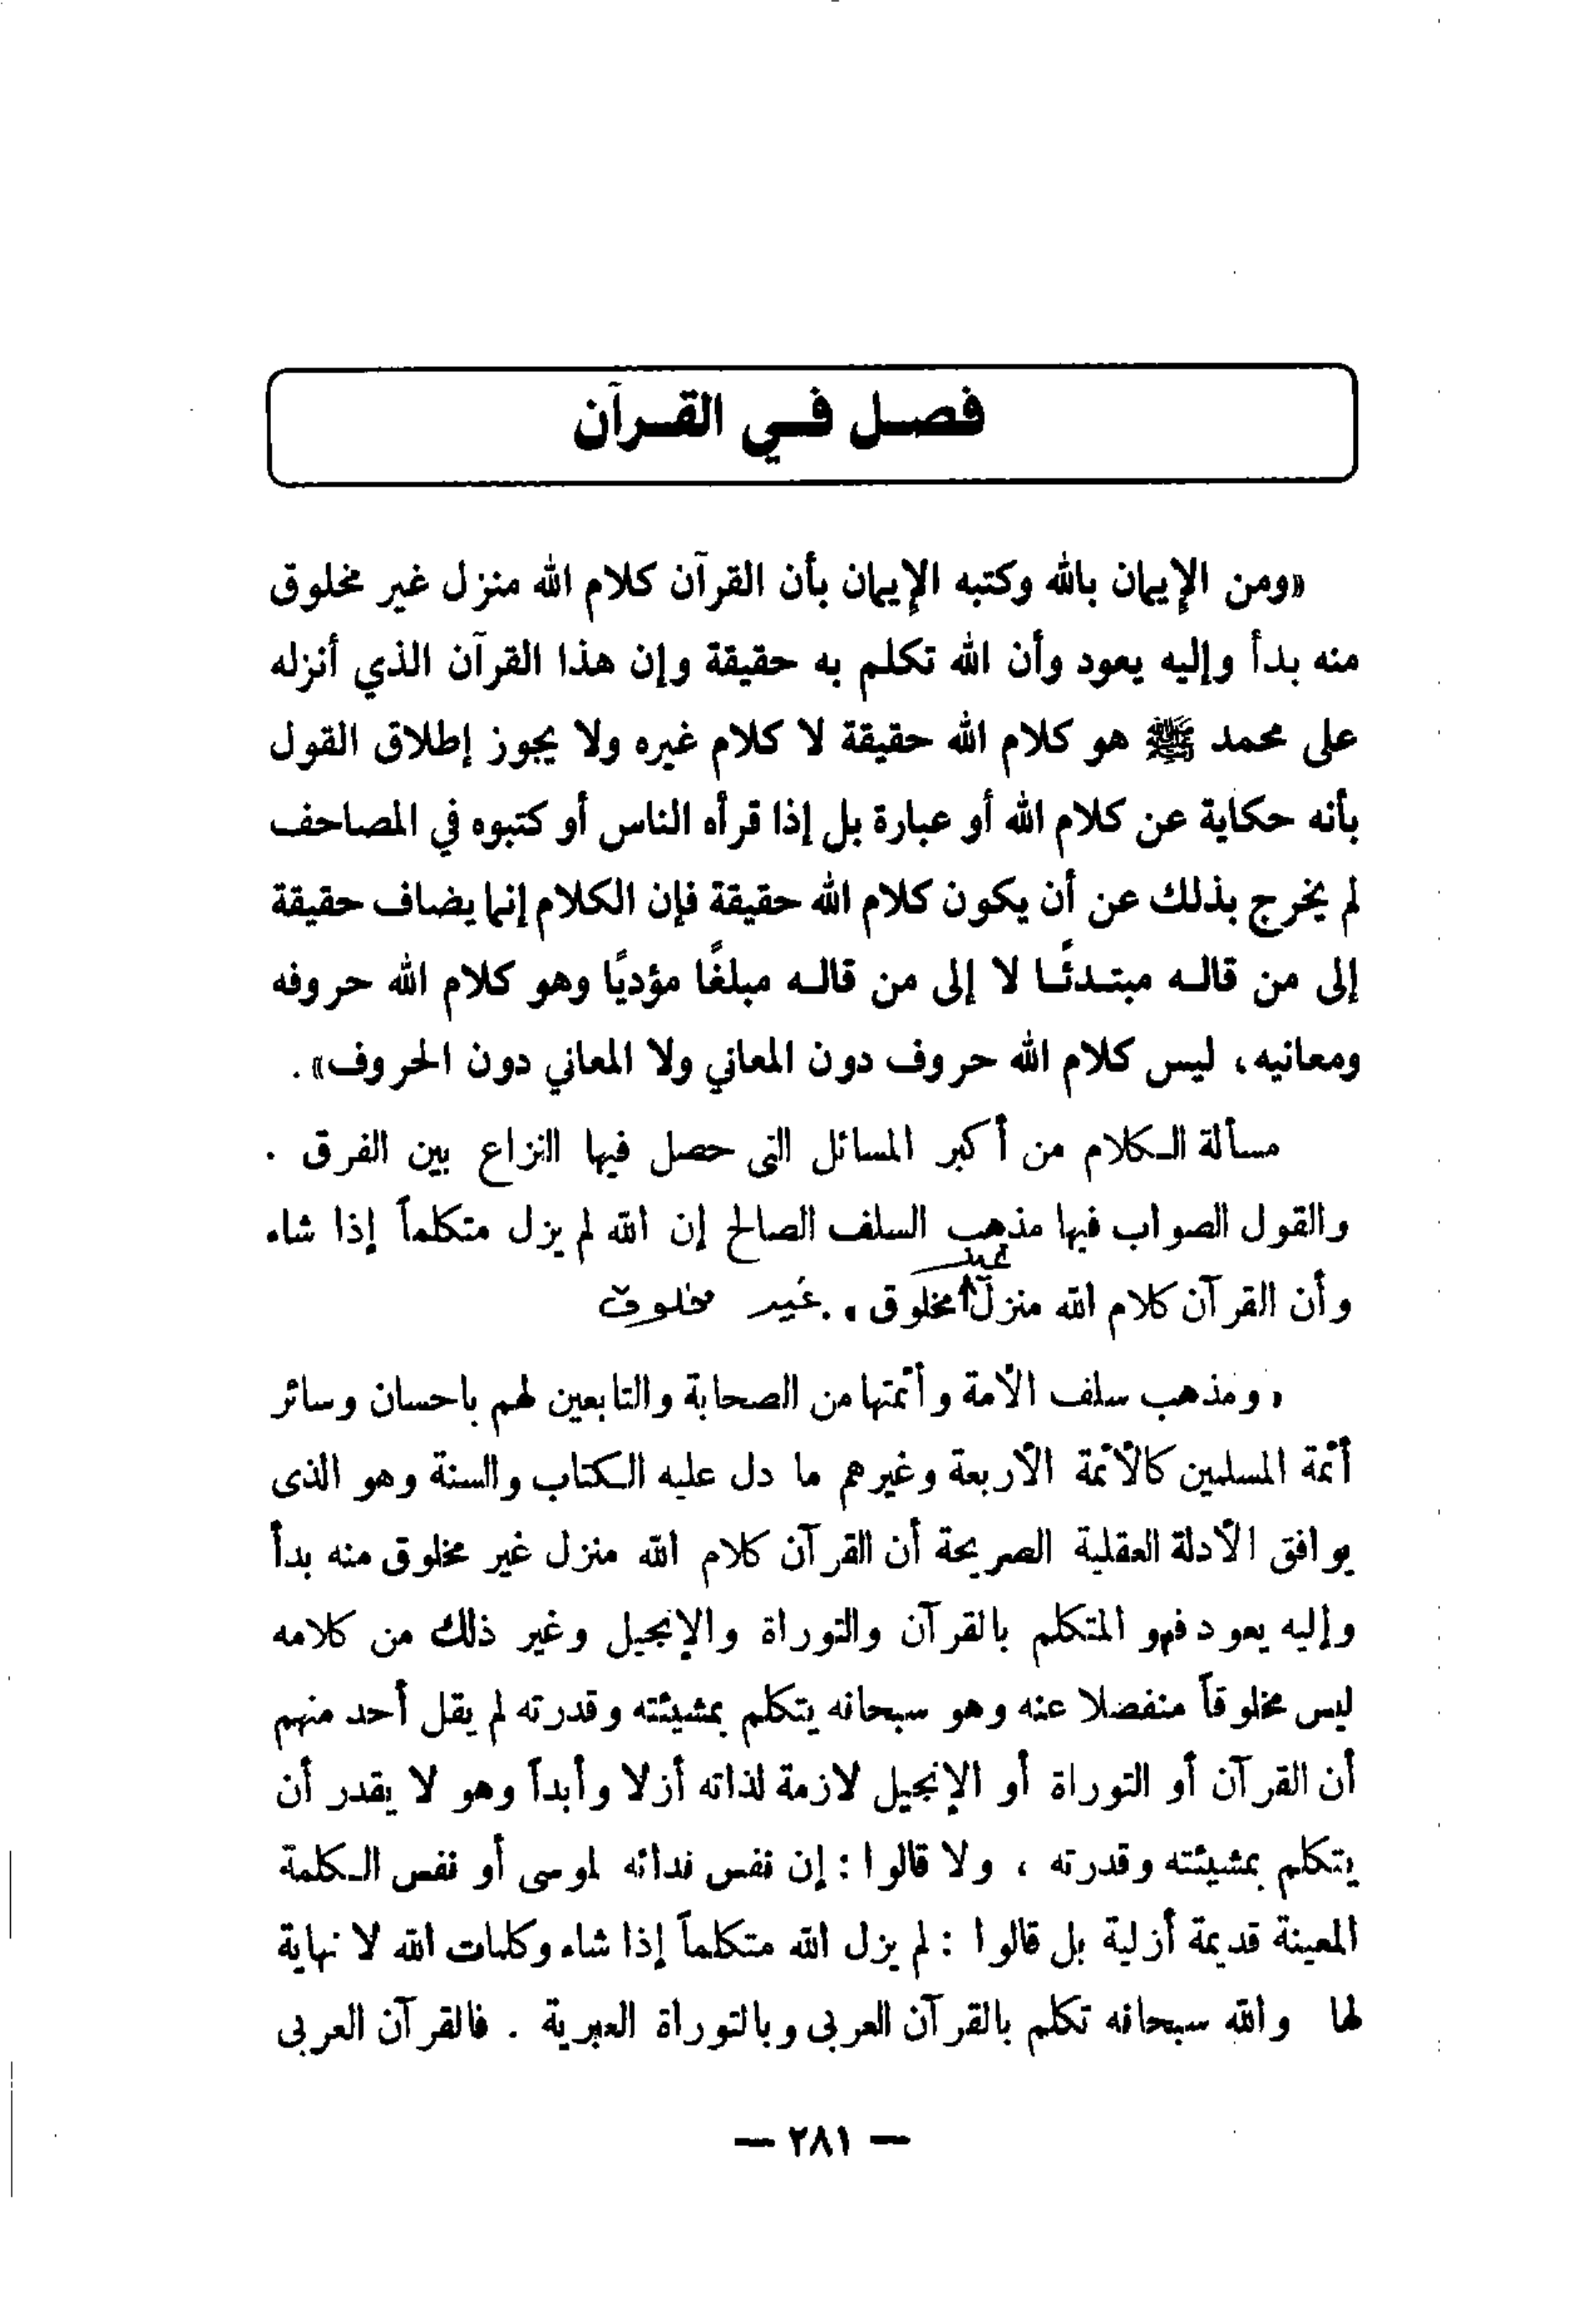 فصل في القرآن
«ومن الإيمان بالله وكتبه الإيمان بأن القرآن كلام الله منزل غير مخلوق
منه بدأ وإليه يعود وأن الله تكلم به حقيقة وإن هذا القرآن الذي أنزله
على محمد ﷺ هو كلام الله حقيقة لا كلام غيره ولا يجوز إطلاق القول
بأنه حكاية عن كلام الله أو عبارة بل إذا قرأه الناس أو كتبوه في المصاحف
لم يخرج بذلك عن أن يكون كلام الله حقيقة فإن الكلام إنما يضاف حقيقة
إلى من قاله مبتدئًا لا إلى من قاله مبلغًا مؤديًا وهو كلام الله حروفه
ومعانيه، ليس كلام الله حروف دون المعاني ولا المعاني دون الحروف».
مسألة الكلام من أكبر المسائل التى حصل فيها النزاع بين الفرق .
والقول الصواب فيها مذهب السلف الصالح إن الله لم يزل متكلماً إذا شاء
غير
وأن القرآن كلام الله منزل مخلوق . غير مخلوق
، ومذهب سلف الأمة وأئمتها من الصحابة والتابعين لهم باحسان وسائر
أئمة المسلمين كالأئمة الأربعة وغيرهم ما دل عليه الكتاب والسنة وهو الذى
يوافق الأدلة العقلية الصريحة أن القرآن كلام الله منزل غير مخلوق منه بدأ
وإليه يعود فهو المتكلم بالقرآن والتوراة والإنجيل وغير ذلك من كلامه
ليس مخلوقاً منفصلا عنه وهو سبحانه يتكلم بمشيئته وقدرته لم يقل أحد منهم
أن القرآن أو التوراة أو الإنجيل لازمة لذاته أزلا وأبداً وهو لا يقدر أن
يتكلم بمشيئته وقدرته ، ولا قالوا : إن نفس ندائه لموسى أو نفس الكلمة
المعينة قديمة أزلية بل قالوا : لم يزل الله متكلماً إذا شاء وكلمات الله لا نهاية
لها والله سبحانه تكلم بالقرآن العربى وبالتوراة العبرية . فالقرآن العربى
— ٢٨١ —